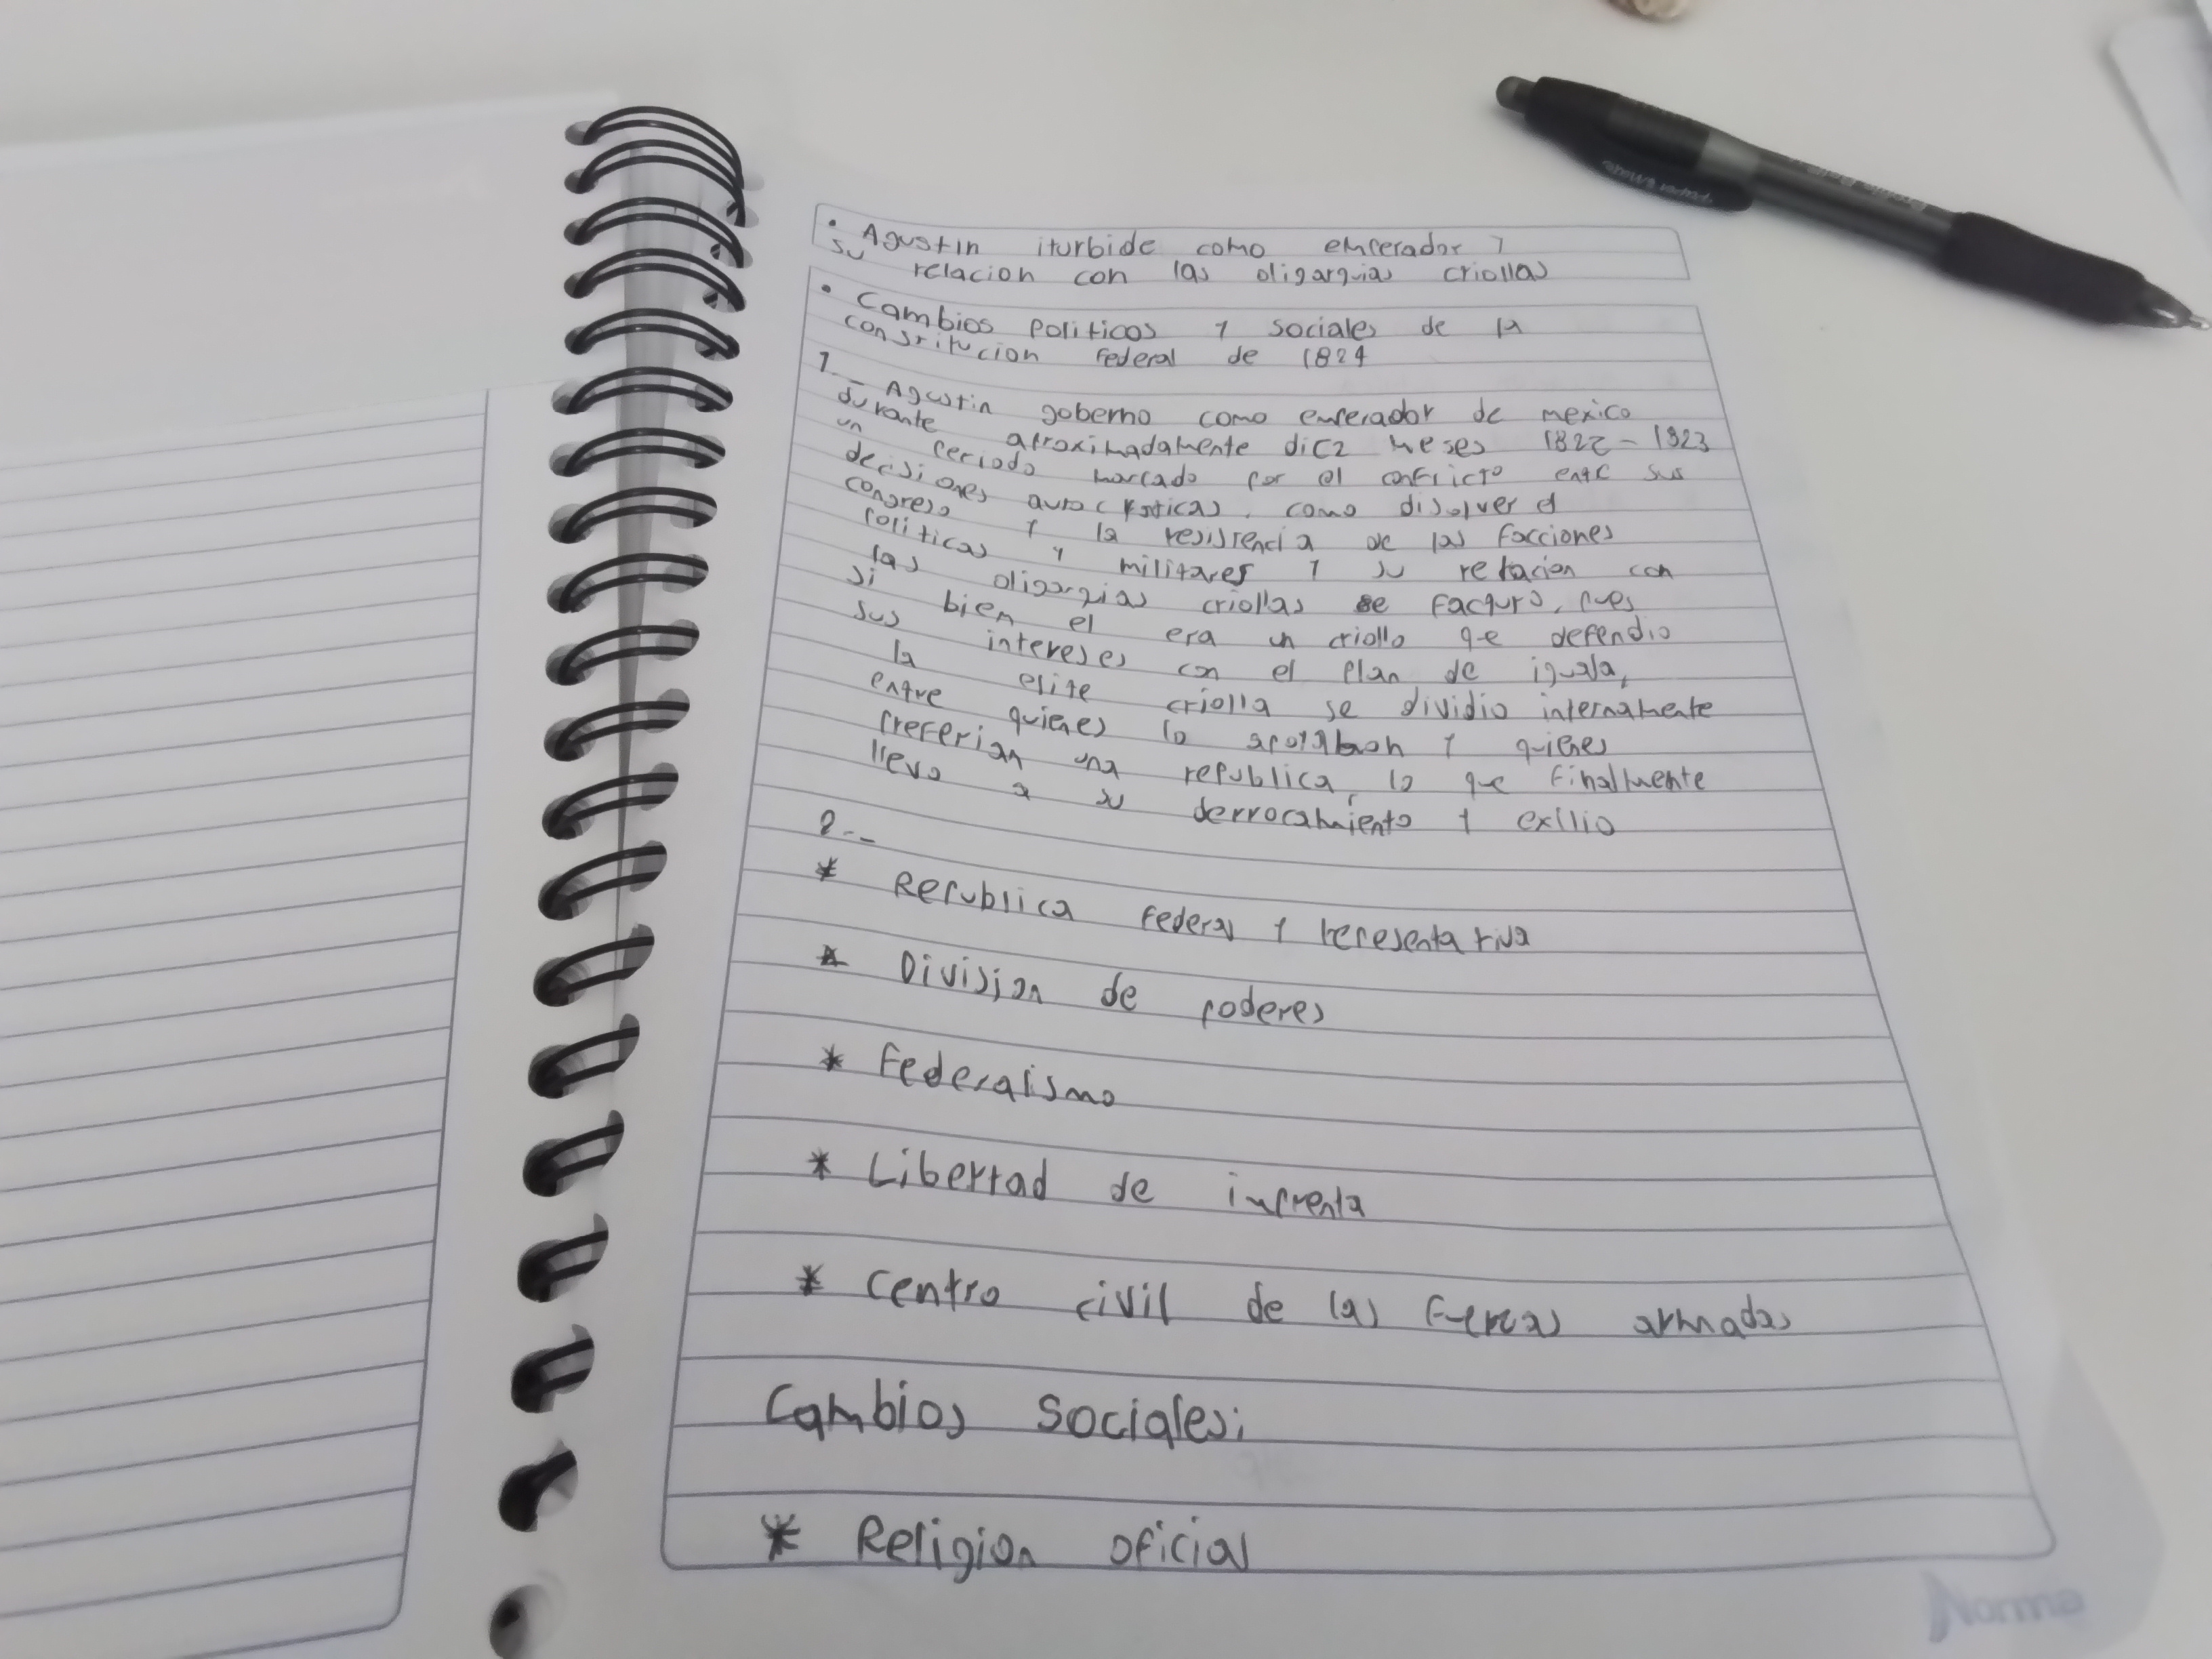 • Agustin iturbide como emperador y
su relacion con las oligarquias criollas
• Cambios politicos y sociales de la
constitucion Federal de 1824
1.- Agustin goberno como emperador de mexico
durante aproximadamente diez meses 1822 - 1923
un periodo marcado por el conflicto entre sus
decisiones autocraticas, como disolver el
congreso y la resistencia de las facciones
politicas y militares y su relacion con
las oligarqias criollas se facturo, pues
si bien el era un criollo qe defendio
sus intereses con el plan de iguala,
la elite criolla se dividio internamente
entre quienes lo apoyaban y quienes
preferian una republica, lo que finalmente
llevo a su derrocamiento y exilio
2.-
* Republica Federal y representativa
* Division de poderes
* Federalismo
* Libertad de imprenta
* Centro civil de las fuerzas armadas
Cambios sociales:
* Religion oficial
Norma